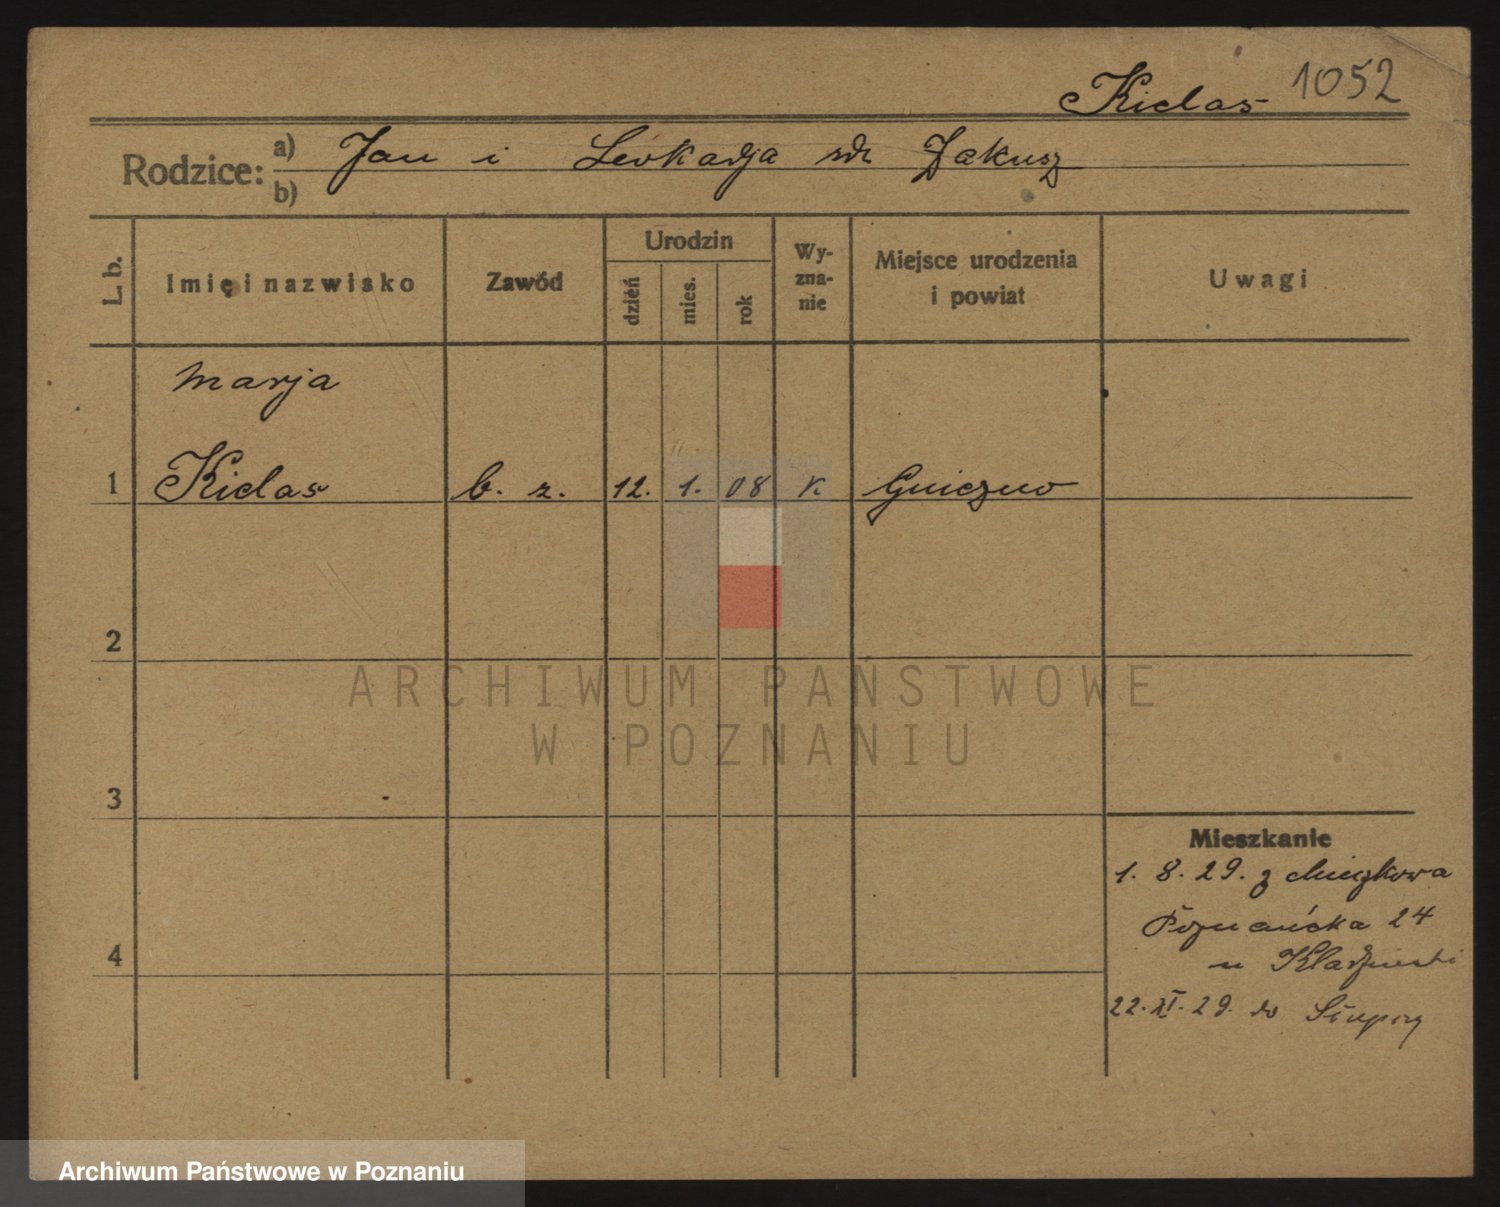 Kielas 1052
Rodzice: a) Jan i Leokadja zd. Jakusz
b)
L. b. Imię i nazwisko Zawód Urodzin dzień mies. rok Wy-zna-nie Miejsce urodzenia i powiat Uwagi
Marja
1 Kielas b. z. 12. 1. 08 K Gniezno
2
ARCHIWUM PAŃSTWOWE
W POZNANIU
3
Mieszkanie
1. 8. 29. z
Poznańska 24
4
u
22. XI. 29. do
Archiwum Państwowe w Poznaniu